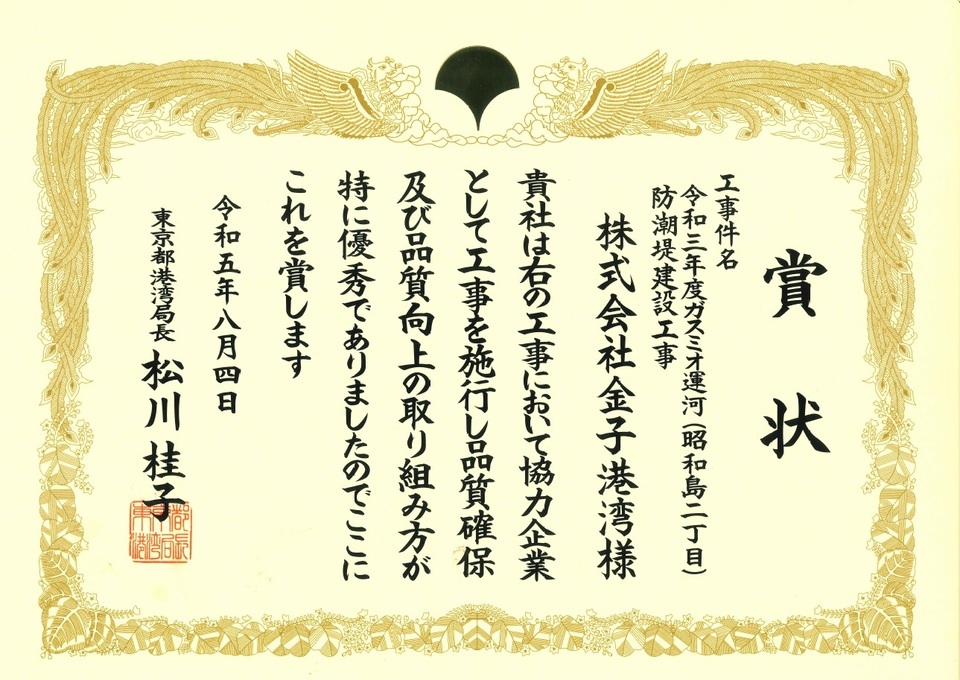 賞状
工事件名
令和三年度ガスミオ運河(昭和島二丁目)
防潮堤建設工事
株式会社金子港湾様
貴社は右の工事において協力企業
として工事を施行し品質確保
及び品質向上の取り組み方が
特に優秀でありましたのでここに
これを賞します
令和五年八月四日
東京都港湾局長 松川桂子